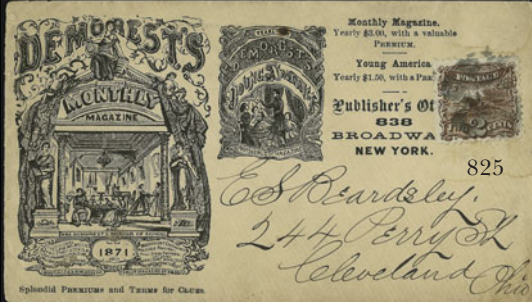 DEMOREST'S
MONTHLY
MAGAZINE
1871
Splendid PREMIUMS and TERMS for CLUBS.
DEMOREST'S
YOUNG AMERICA
Monthly Magazine.
Yearly $3.00, with a valuable
PREMIUM.
Young America
Yearly $1.50, with a
Publisher's Of
838
BROADWA
NEW YORK.
POSTAGE
2
825
E S Beardsley.
244 Perry St
Cleveland Ohio